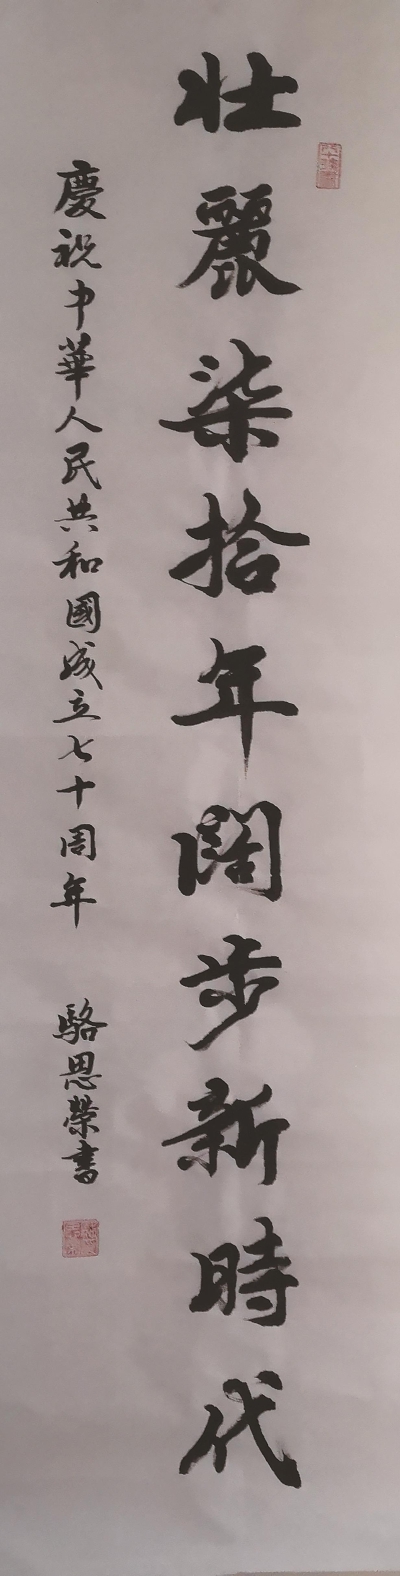 壯麗柒拾年闊步新時代
慶祝中華人民共和國成立七十周年
駱恩榮書